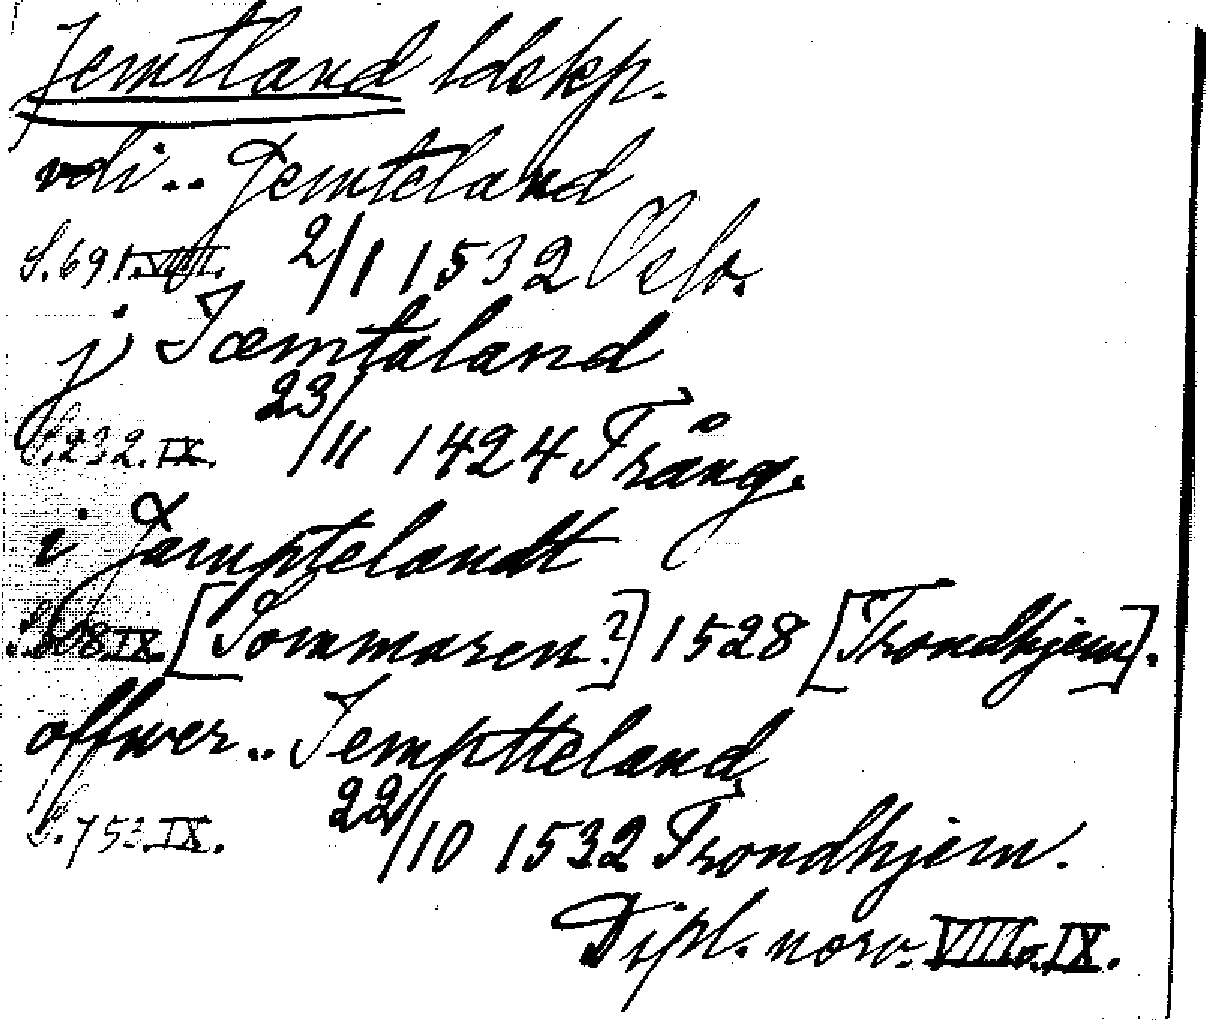 Jemtland ldskp.
vdi .. Jemteland
S. 691. VIII. 2/1 1532 Oslo.
j Jæmtaland
S. 232. IX. 23/11 1424 Frång.
i Jamptelandt
IX. [Sommaren?] 1528 [Trondhjem].
offwer .. Jemptteland
S. 753. IX. 22/10 1532 Trondhjem.
Dipl. norv. VIII o. IX.